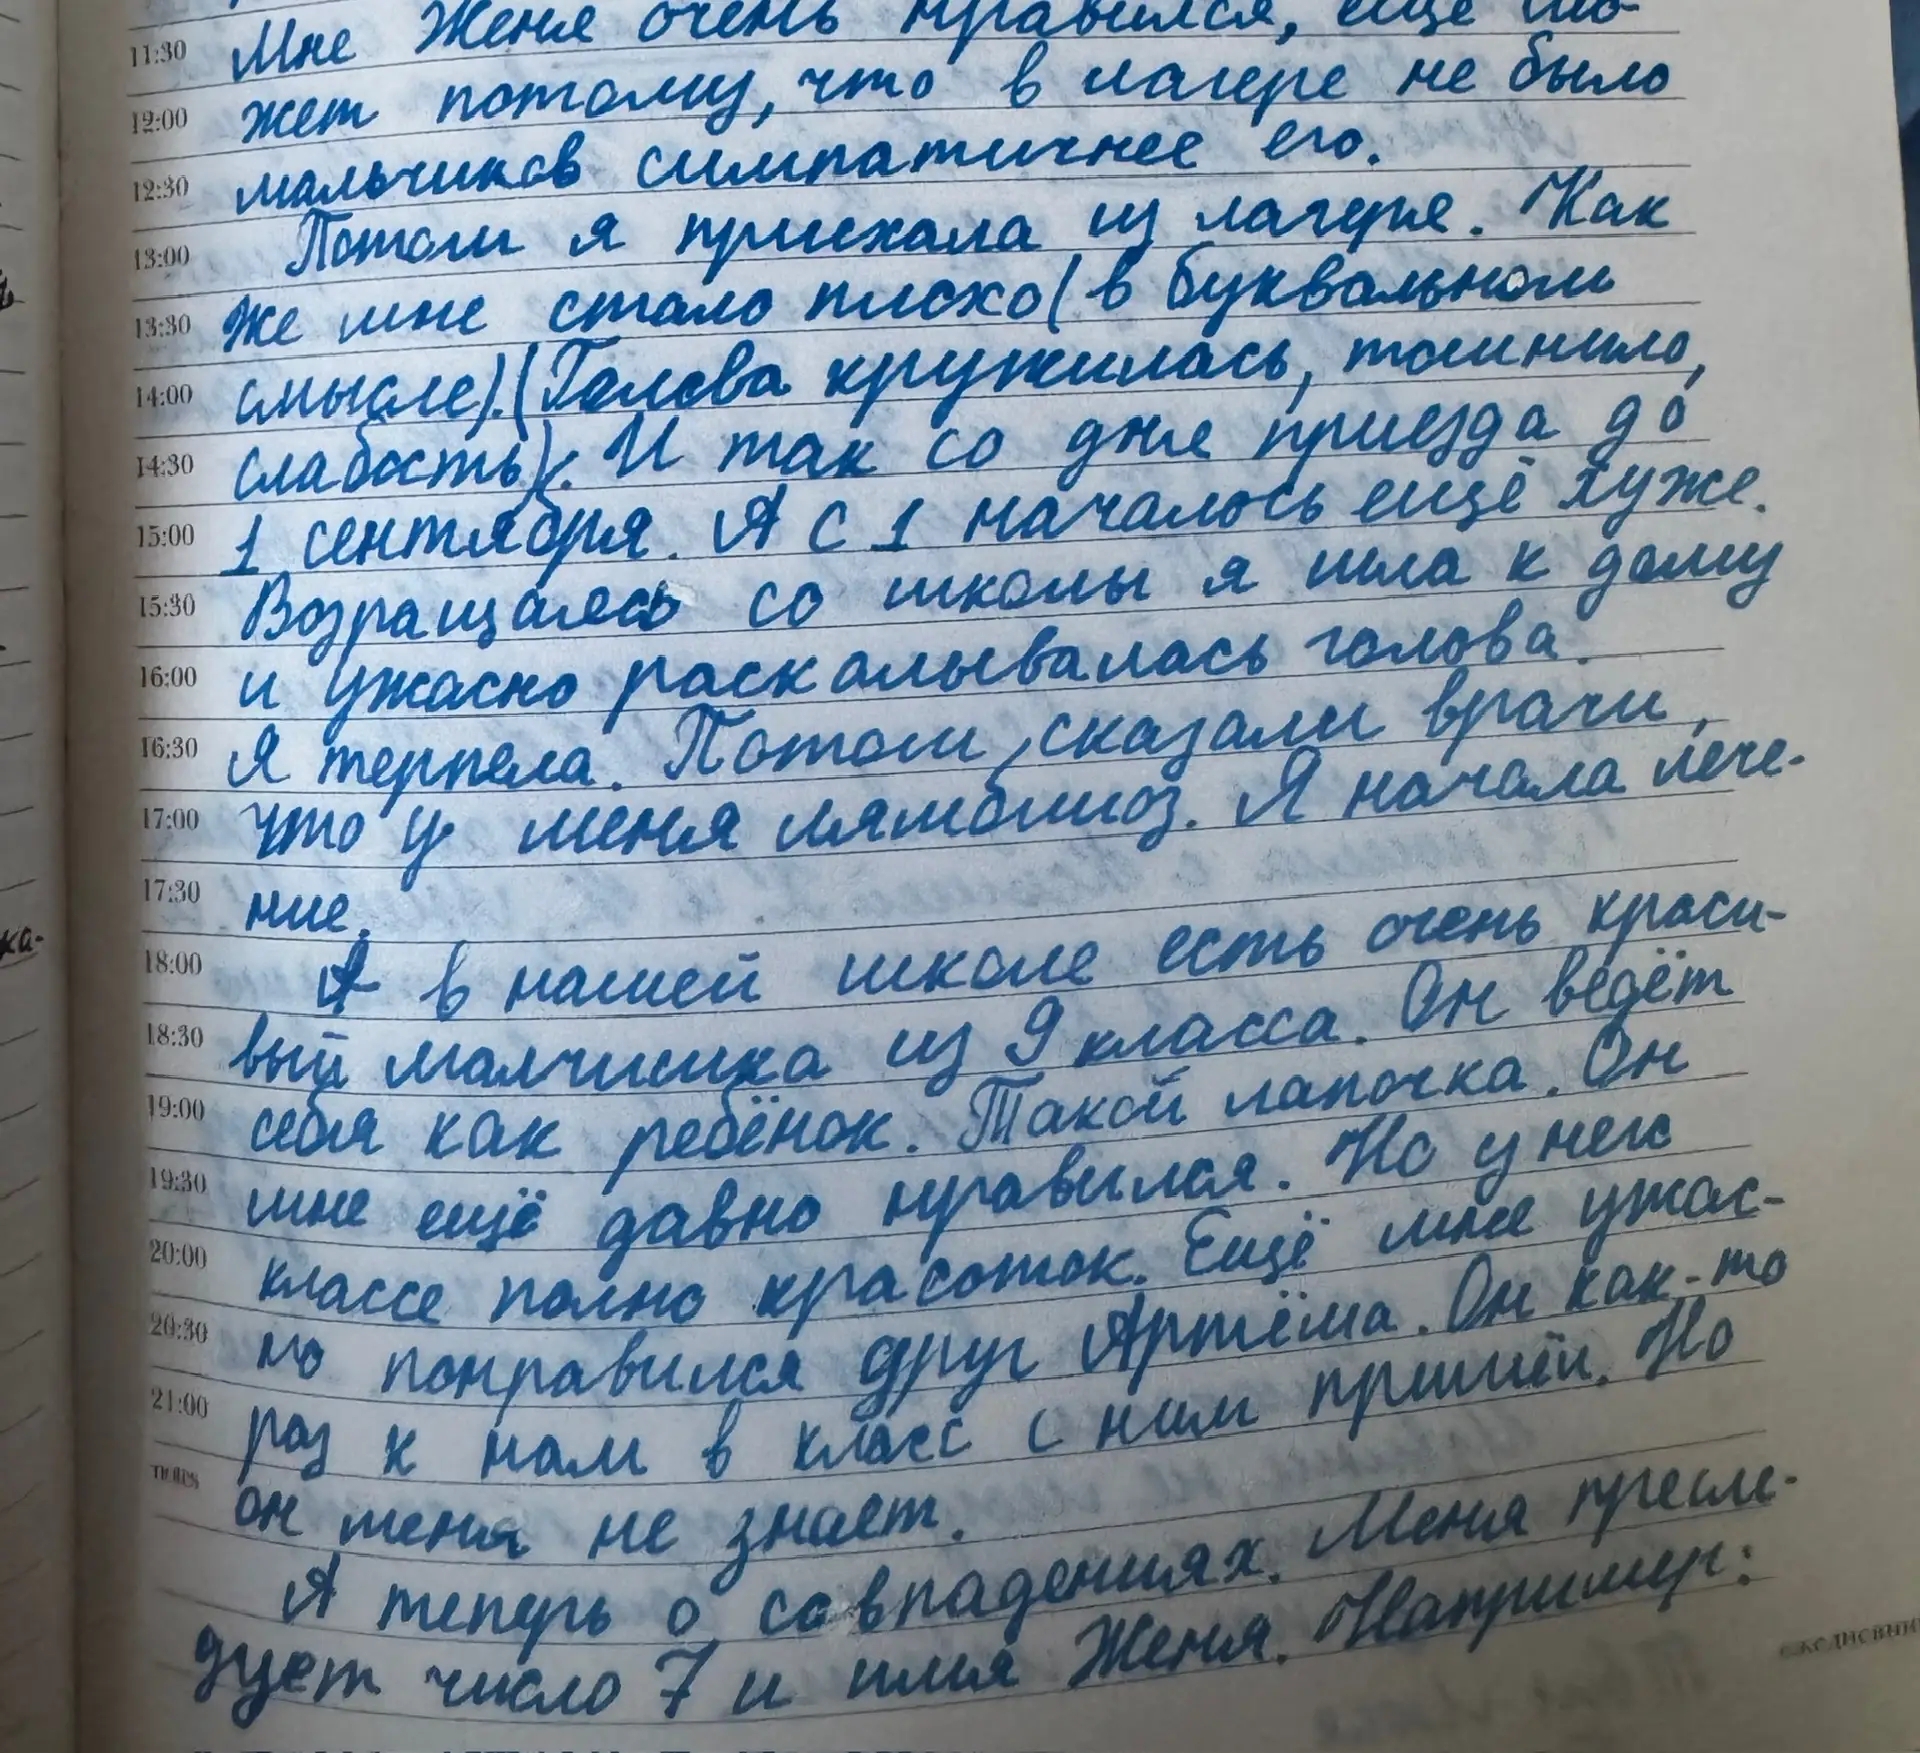 11:30 Мне Женя очень нравился, ещё мо-
12:00 жет потому, что в лагере не было
12:30 мальчиков симпатичнее его.
13:00 Потом я приехала из лагеря. Как
13:30 же мне стало плохо (в буквальном
14:00 смысле). (Голова кружилась, тошнило,
14:30 слабость). И так со дня приезда до
15:00 1 сентября. А с 1 началось ещё хуже.
15:30 Возращаясь со школы я шла к дому
16:00 и ужасно раскалывалась голова.
16:30 Я терпела. Потом, сказали врачи,
17:00 что у меня лямблиоз. Я начала лече-
17:30 ние.
18:00 А в нашей школе есть очень краси-
18:30 вый малчишка из 9 класса. Он ведёт
19:00 себя как ребёнок. Такой лапочка. Он
19:30 мне ещё давно нравился. Но у него
20:00 классе полно красоток. Ещё мне ужас-
20:30 но понравился друг Артёма. Он как-то
21:00 раз к нам в класс с ним пришёл. Но
notes он меня не знает.
А теперь о совпадениях. Меня пресле-
дует число 7 и имя Женя. Например:
ка-